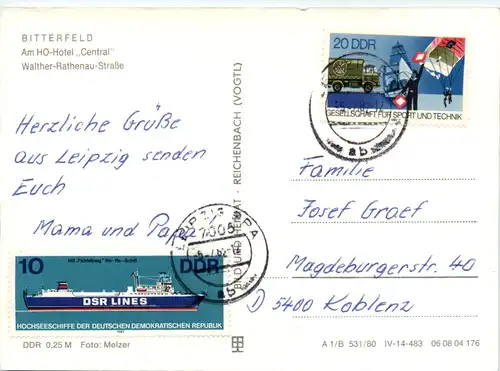 BITTERFELD
Am HO-Hotel „Central"
Walther-Rathenau-Straße
Herzliche Grüße
aus Leipzig senden
Euch
Mama und Papa
BILD UND HEIMAT · REICHENBACH (VOGTL)
20 DDR
GESELLSCHAFT FÜR SPORT UND TECHNIK
ab
Familie
Josef Graef
Magdeburgerstr. 40
5400 Koblenz
7005
ab
10
DDR
DSR LINES
HOCHSEESCHIFFE DER DEUTSCHEN DEMOKRATISCHEN REPUBLIK
DDR 0,25 M Foto: Melzer
A 1/B 531/80 IV-14-483 06 08 04 176